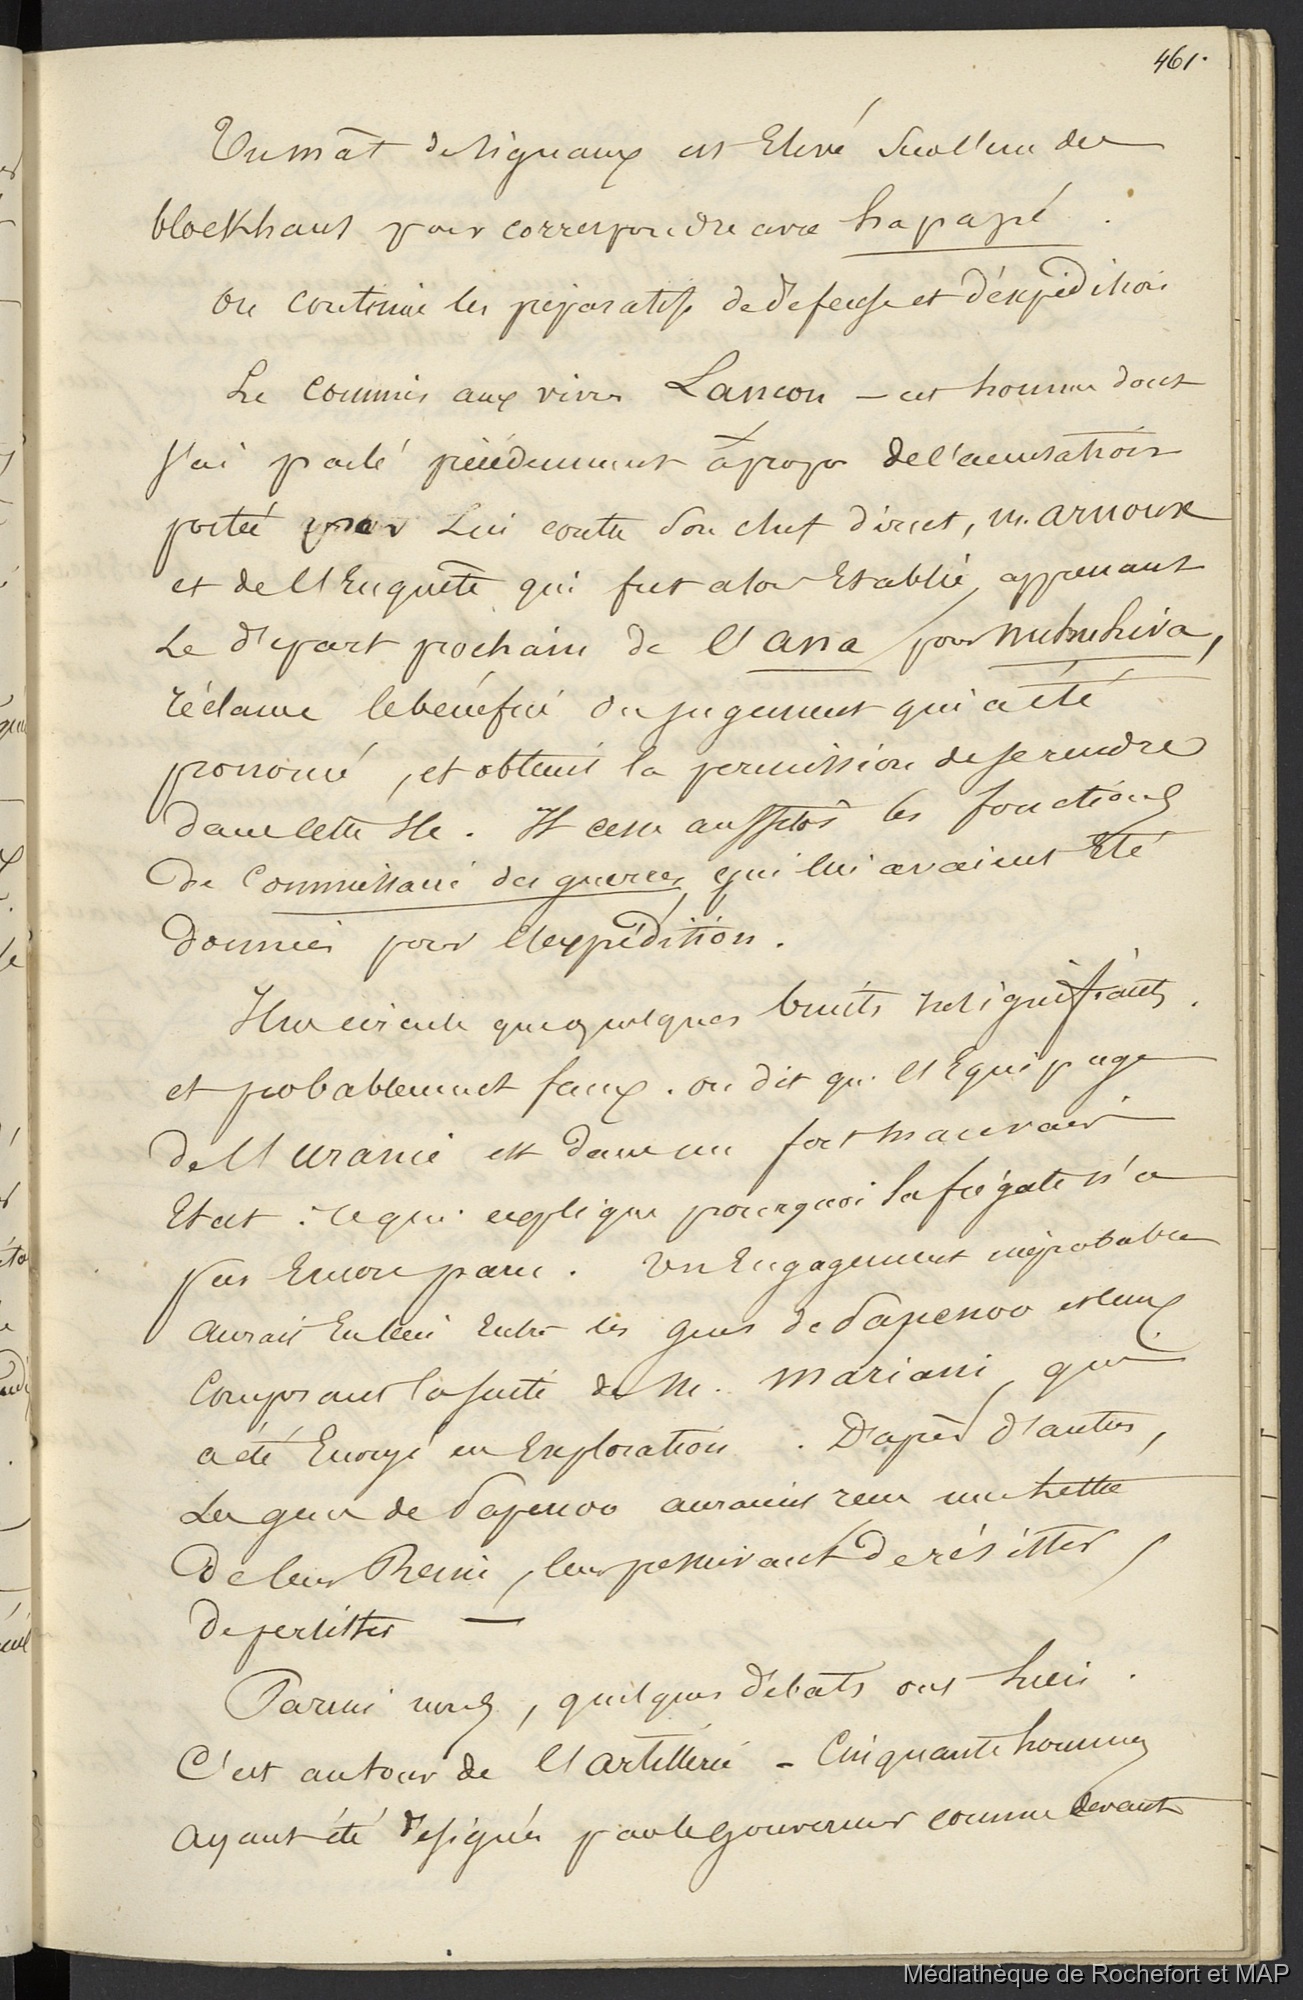 461.
Un mât de signaux est Elevé sur l'un des
blockhaus pour correspondre avec hapapé.
On continue les préparatifs de défense et d'éxpédition
Le commis aux vivres Lancon – cet homme dont
j'ai parlé précédemment à propos de l'accusation
portée par Lui contre son chef direct, m. arnoux
et de l'Enquête qui fut alors Etablie, apprenant
Le départ prochain de l'ana pour nukuhiva,
réclame le bénéfice du jugement qui a été
prononcé, et obtient la permission de se rendre
dans cette Ile. Il cesse aussitôt les fonctions
de Commissaire des guerres, qui lui avaient Eté
données pour l'expédition.
Il ne circule que quelques bruits insignifiants
et probablement faux. on dit que l'Equipage
de l'uranie est dans un fort mauvais
Etat : ce qui explique pourquoi la frégate n'a
pas Encore paru. Un Engagement improbable
aurait Eu lieu Entre les gens de Papenoo et ceux
composant la suite de M. Mariani, qui
a été Envoyé en Exploration. D'après d'autres,
Les gens de Papenoo auraient recu une lettre
de leur Reine, leur prescrivant de résister,
de persister —
Parmi nous, quelques débats ont lieu.
C'est autour de l'artillerie – Cinquante hommes
ayant été désignés par le gouverneur comme devant
Médiathèque de Rochefort et MAP